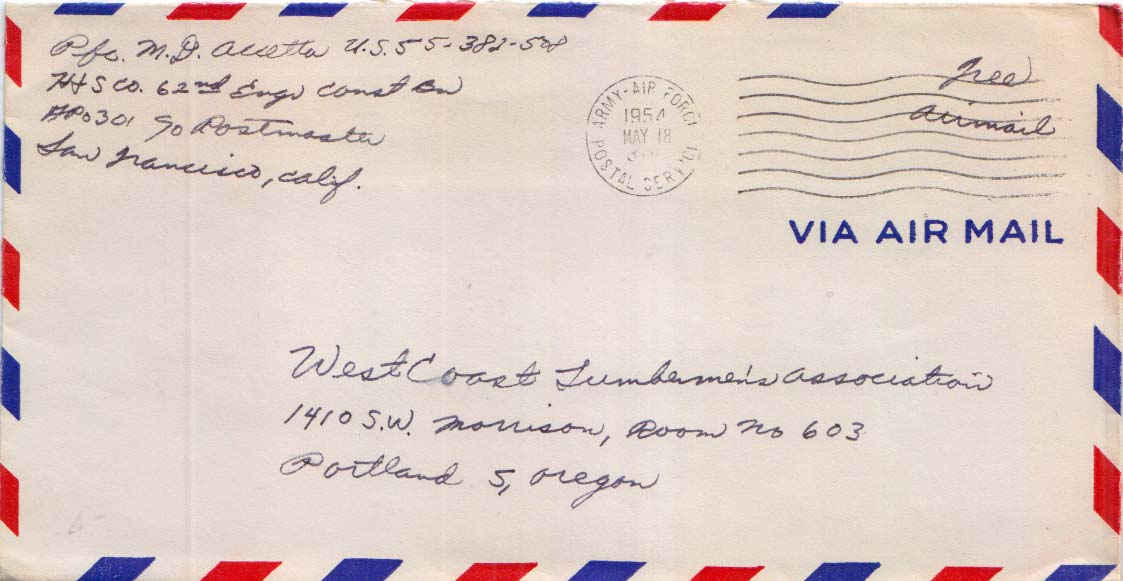 Pfc. M.D. Accetta U.S. 55-382-508
H+S Co. 62nd Engr Const Bn
APO 301 c/o Postmaster
San Francisco, Calif.
ARMY-AIR FORCE
1954
MAY 18
POSTAL SERVICE
Free
airmail
VIA AIR MAIL
West Coast Lumbermen's Association
1410 S.W. Morrison, Room No 603
Portland 5, Oregon